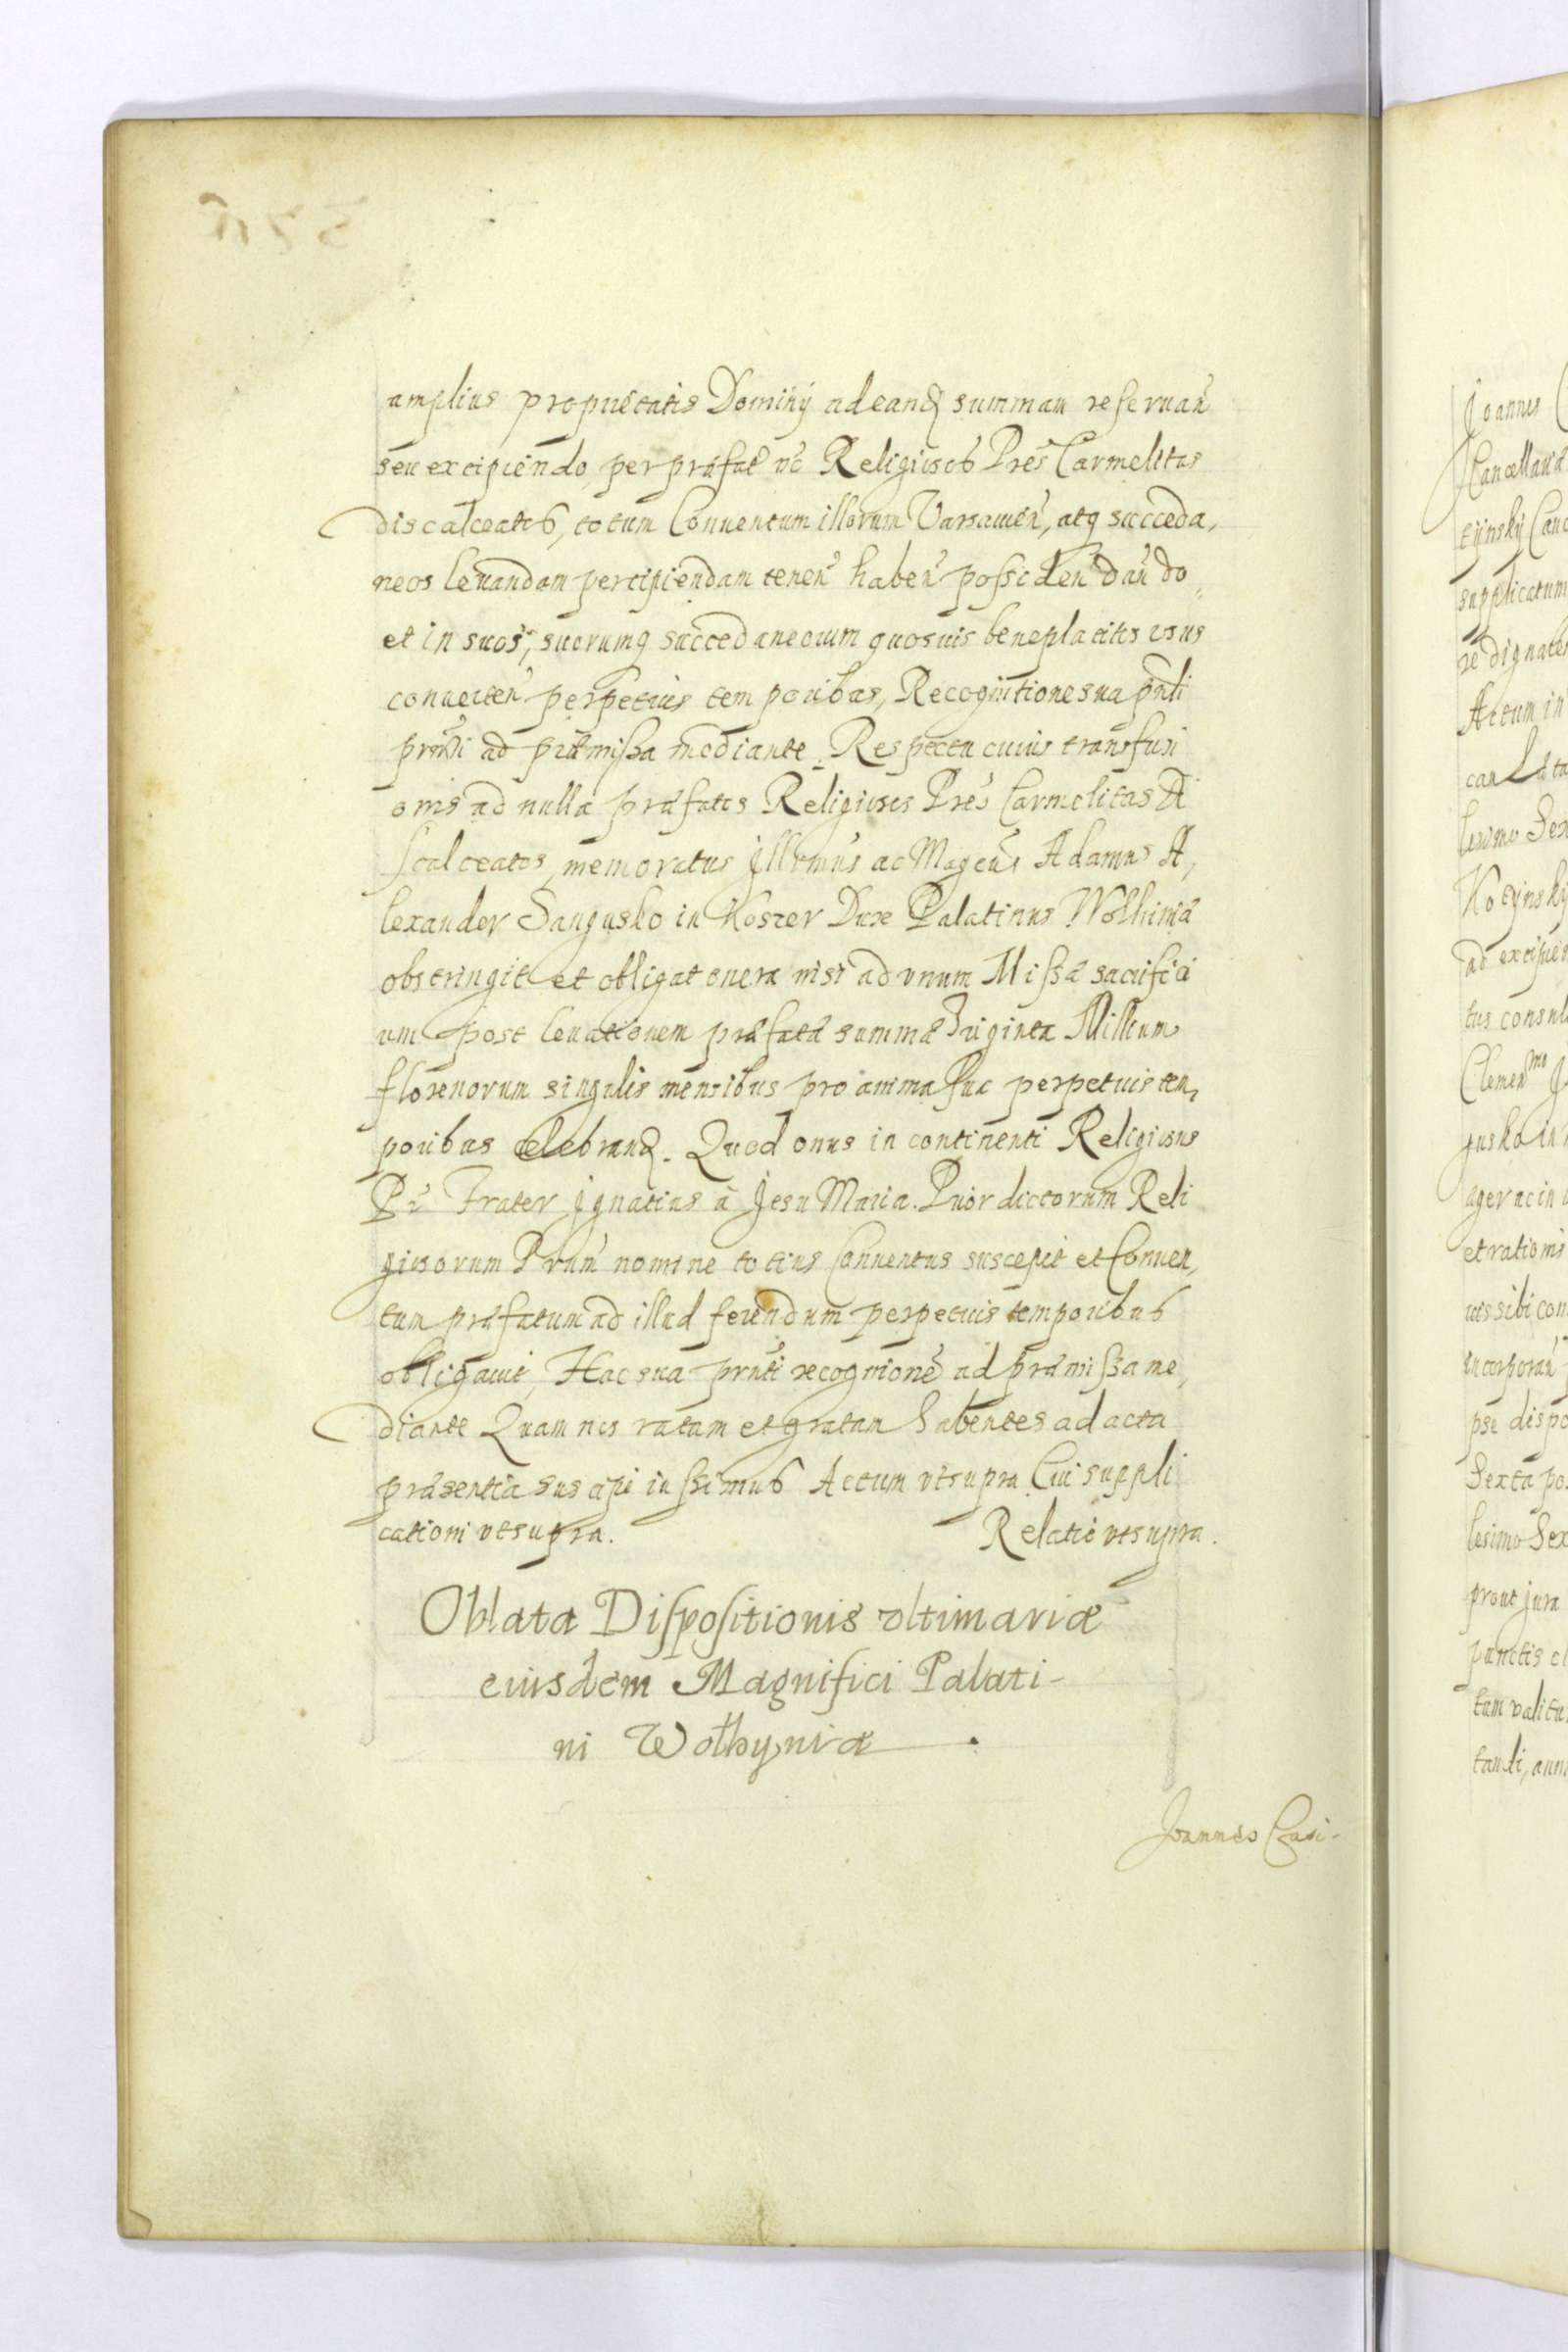 amplius proprietatis Dominij ad eand summam reseruan
seu excipiendo per præfat vc Religiosos Pres Carmelitas
discalceatos, totum Conuentum illorum Varsauien, atq succeda,
neos leuandam percipiendam tenen haben possiden dan do
et in suos, suorumq succedaneorum quosuis beneplacitos vsus
conuerten perpetuis temporibas, Recognitione sua pnti
prnti ad præmissa mediante. Respectu cuius transfusi
onis ad nulla præfatos Religiosos Pres Carmelitas di
scalceatos, memoratus Jllrmus ac Magcus Adamus A,
lexander Sangusko in Koszer Dux Palatinus Wolhiniæ
obstringit et obligat onera nisi ad vnum Missæ sacrifici
um post leuationem præfatæ summæ Triginta Millium
florenorum singulis mensibus pro anima sua perpetuis tem,
poribus celebrand. Quod onus in continenti Religiosus
Pr Frater Jgnatius à Jesu Maria. Prior dictorum Reli
giosorum Prum nomine totius Conuentus suscepit et Conuen,
tum præfatum ad illud ferendum perpetuis temporibus
obligauit, Hac sua prnti recognitione ad præmissa me,
diante Quam nos ratam et gratam habentes ad acta
præsentia suscipi iussimus Actum vt supra Cui suppli
cationi vt supra. Relatio vt supra.
Oblata Dispositionis vltimariæ
eiusdem Magnifici Palati-
ni Wolhyniæ.
Joannes Casi-
Joannes
Cancellaria
supplicatum
re dignate
Actum in
ad excipien
tus consul
Clemen^mo
gusko in
ager ac in
et rationis
uis sibi con
incorporan
pse dispo
Sexta po
lesimo Sex
prout jura
punctis
tam valitu
tandi, ann